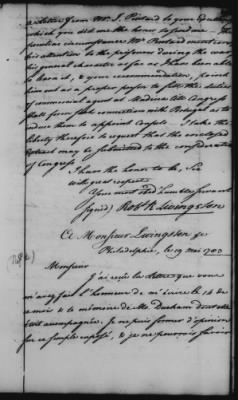 a letter from Mr. J. Pintard to your Excellency
which you did me the honor to send me. The
peculiar circumstances Mr Pintard mentions
his attention to the prisoners during the war
his general character as far as I have been able
to learn it, & your recommendation, point
him out as a proper person to fill the duties
of commercial agent at Madeira till Congress
shall form such connection with Portugal as to
induce them to appoint Consuls. I take the
liberty therefore to request that the enclosed
extract may be submitted to the consideration
of Congress.
I have the honor to be, Sir
with great respect
Your most Obed humble servant
(signed) Robt R Livingston
A Monsieur Livingston &c
Philadelphie, le 19 mai 1783
Monsieur
J'ai reçu la lettre que vous
m'avez fait l'honneur de m'écrire le 15 de
ce mois & le mémoire de M. dont elle
était accompagnée. Je ne puis former d'opinion
sur ce simple exposé, & je ne pourrois